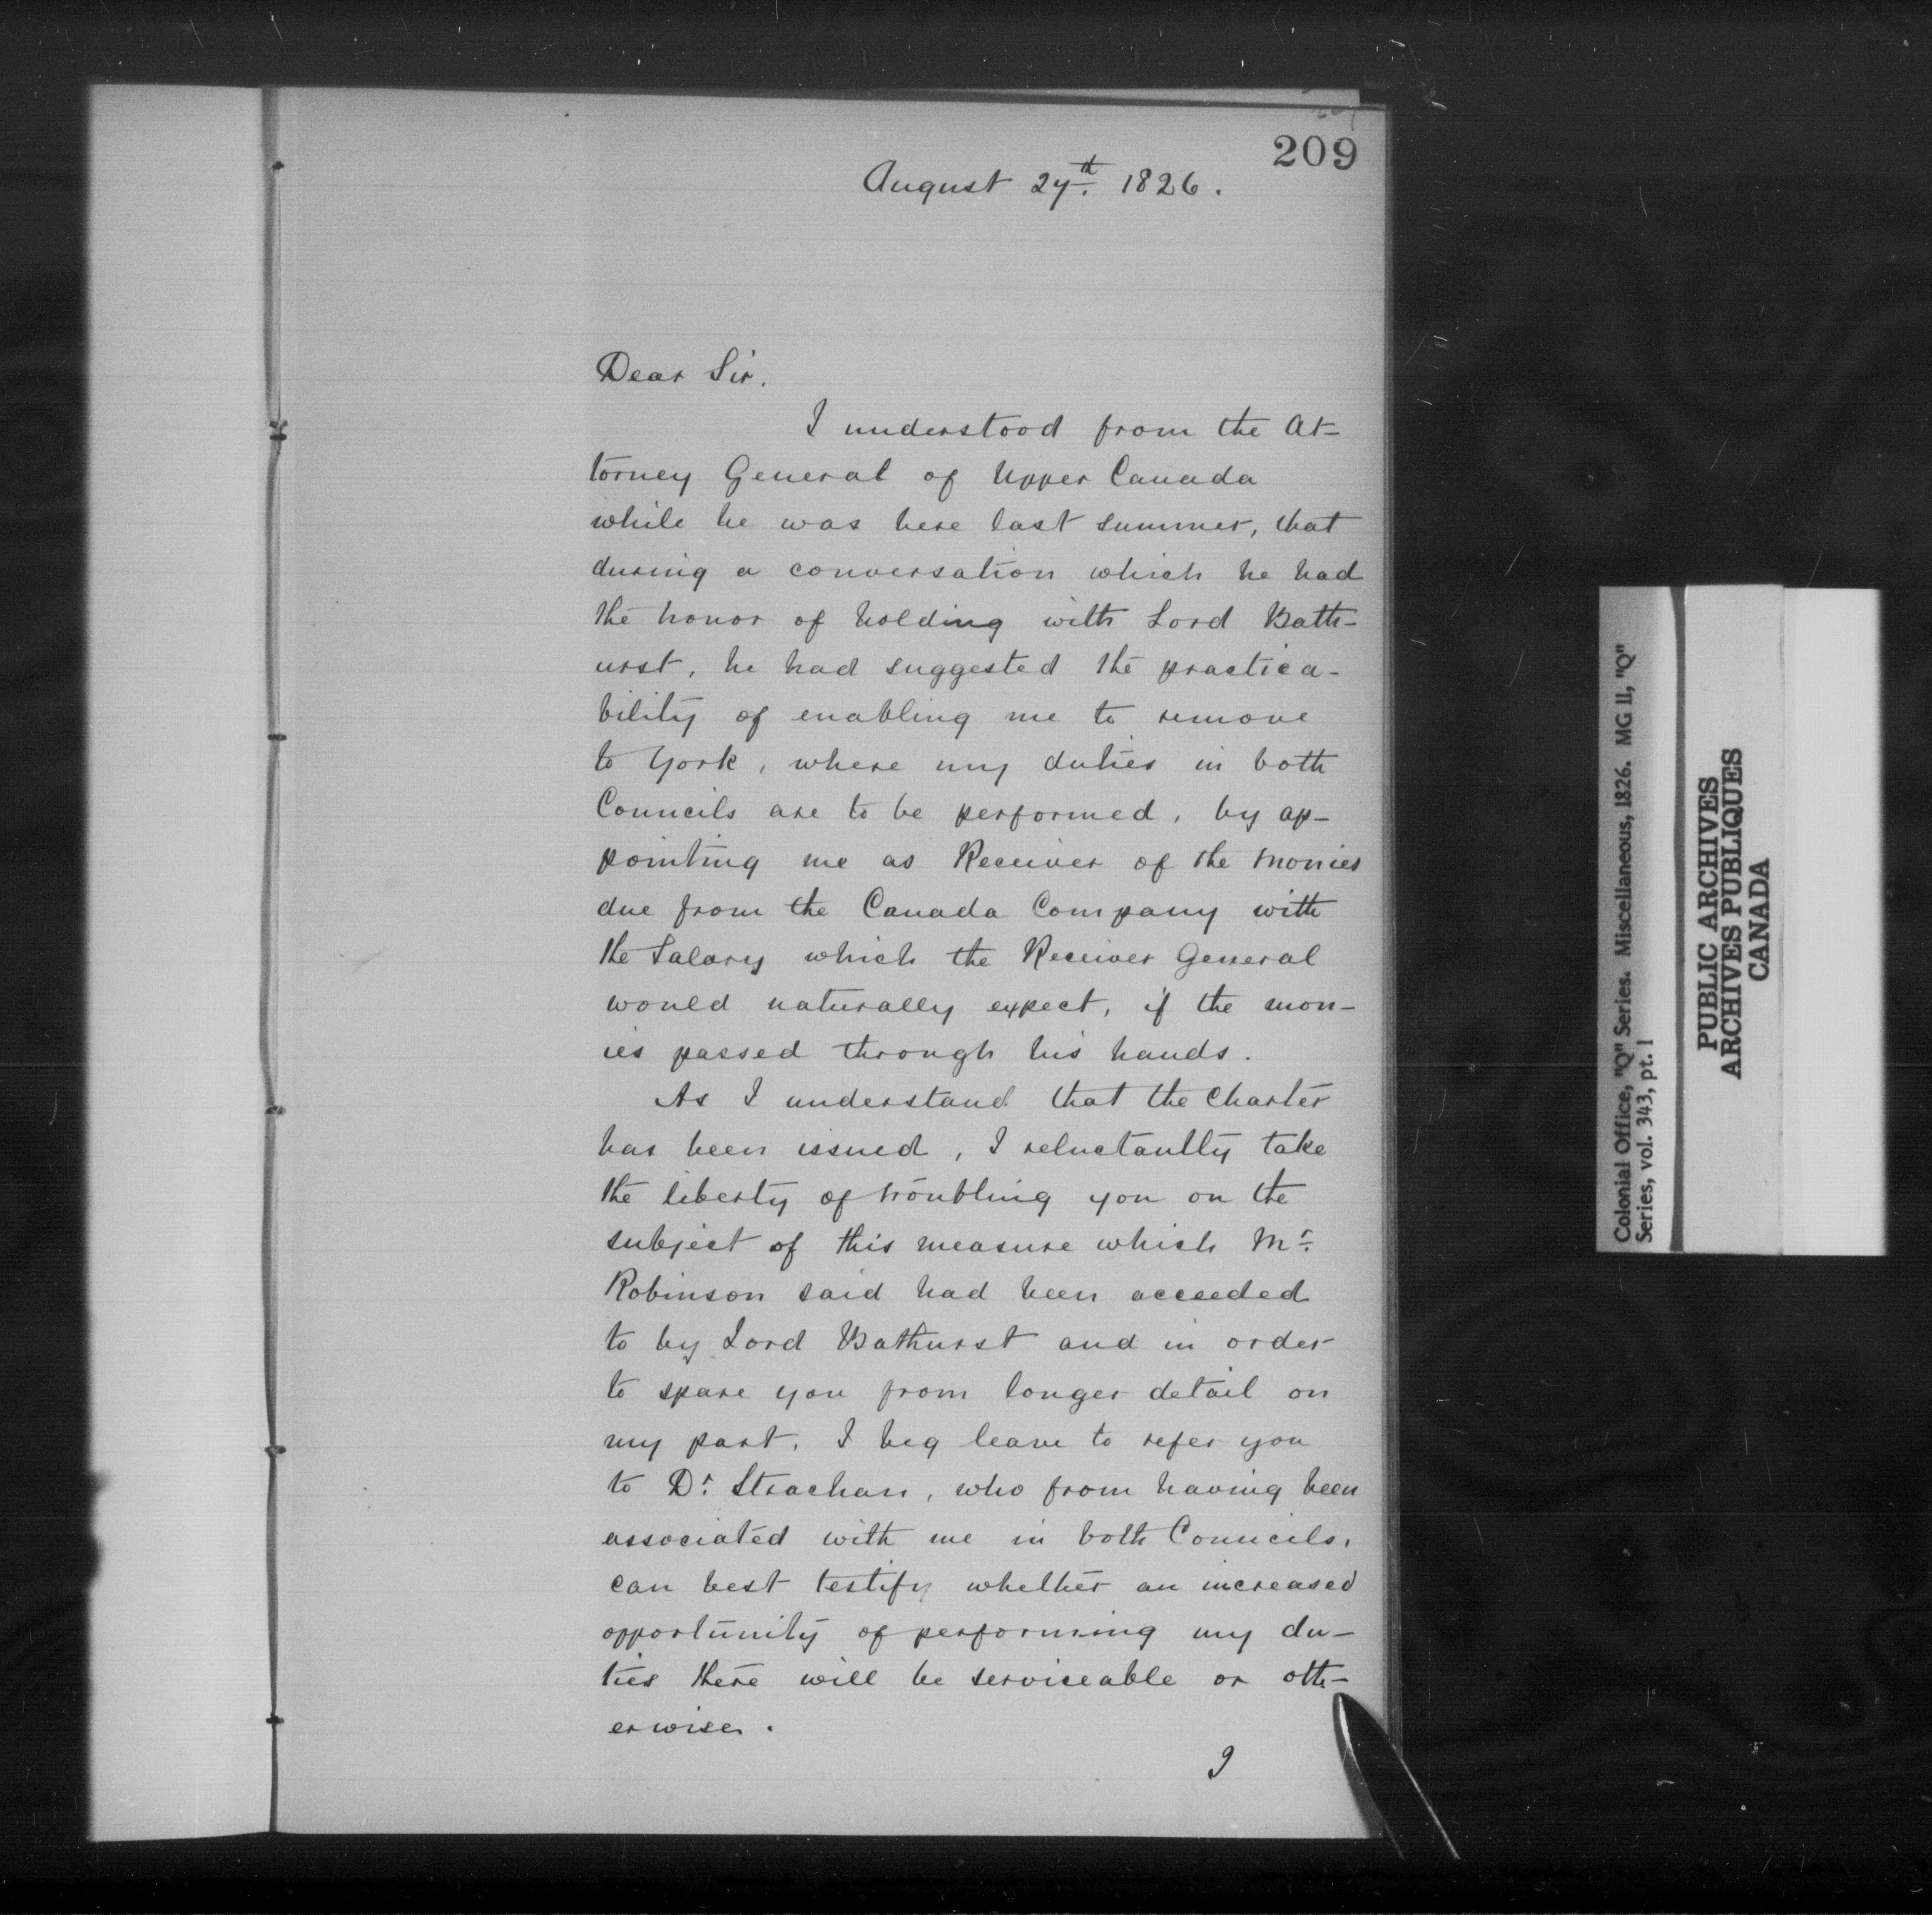 209
August 27th. 1826.
Dear Sir.
I understood from the At-
torney General of Upper Canada
while he was here last summer, that
during a conversation which he had
the honor of holding with Lord Bath-
urst, he had suggested the practica-
bility of enabling me to remove
to York, where my duties in both
Councils are to be performed, by ap-
pointing me as Receiver of the monies
due from the Canada Company with
the Salary which the Receiver General
would naturally expect, if the mon-
ies passed through his hands.
As I understand that the Charter
has been issued, I reluctantly take
the liberty of troubling you on the
subject of this measure which Mr.
Robinson said had been acceeded
to by Lord Bathurst and in order
to spare you from longer detail on
my part, I beg leave to refer you
to Dr. Strachan, who from having been
associated with me in both Councils,
can best testify whether an increased
opportunity of performing my du-
ties there will be serviceable or oth-
erwise.
I
Colonial Office, "Q" Series. Miscellaneous, 1826. MG 11, "Q"
Series, vol. 343, pt. 1
PUBLIC ARCHIVES
ARCHIVES PUBLIQUES
CANADA